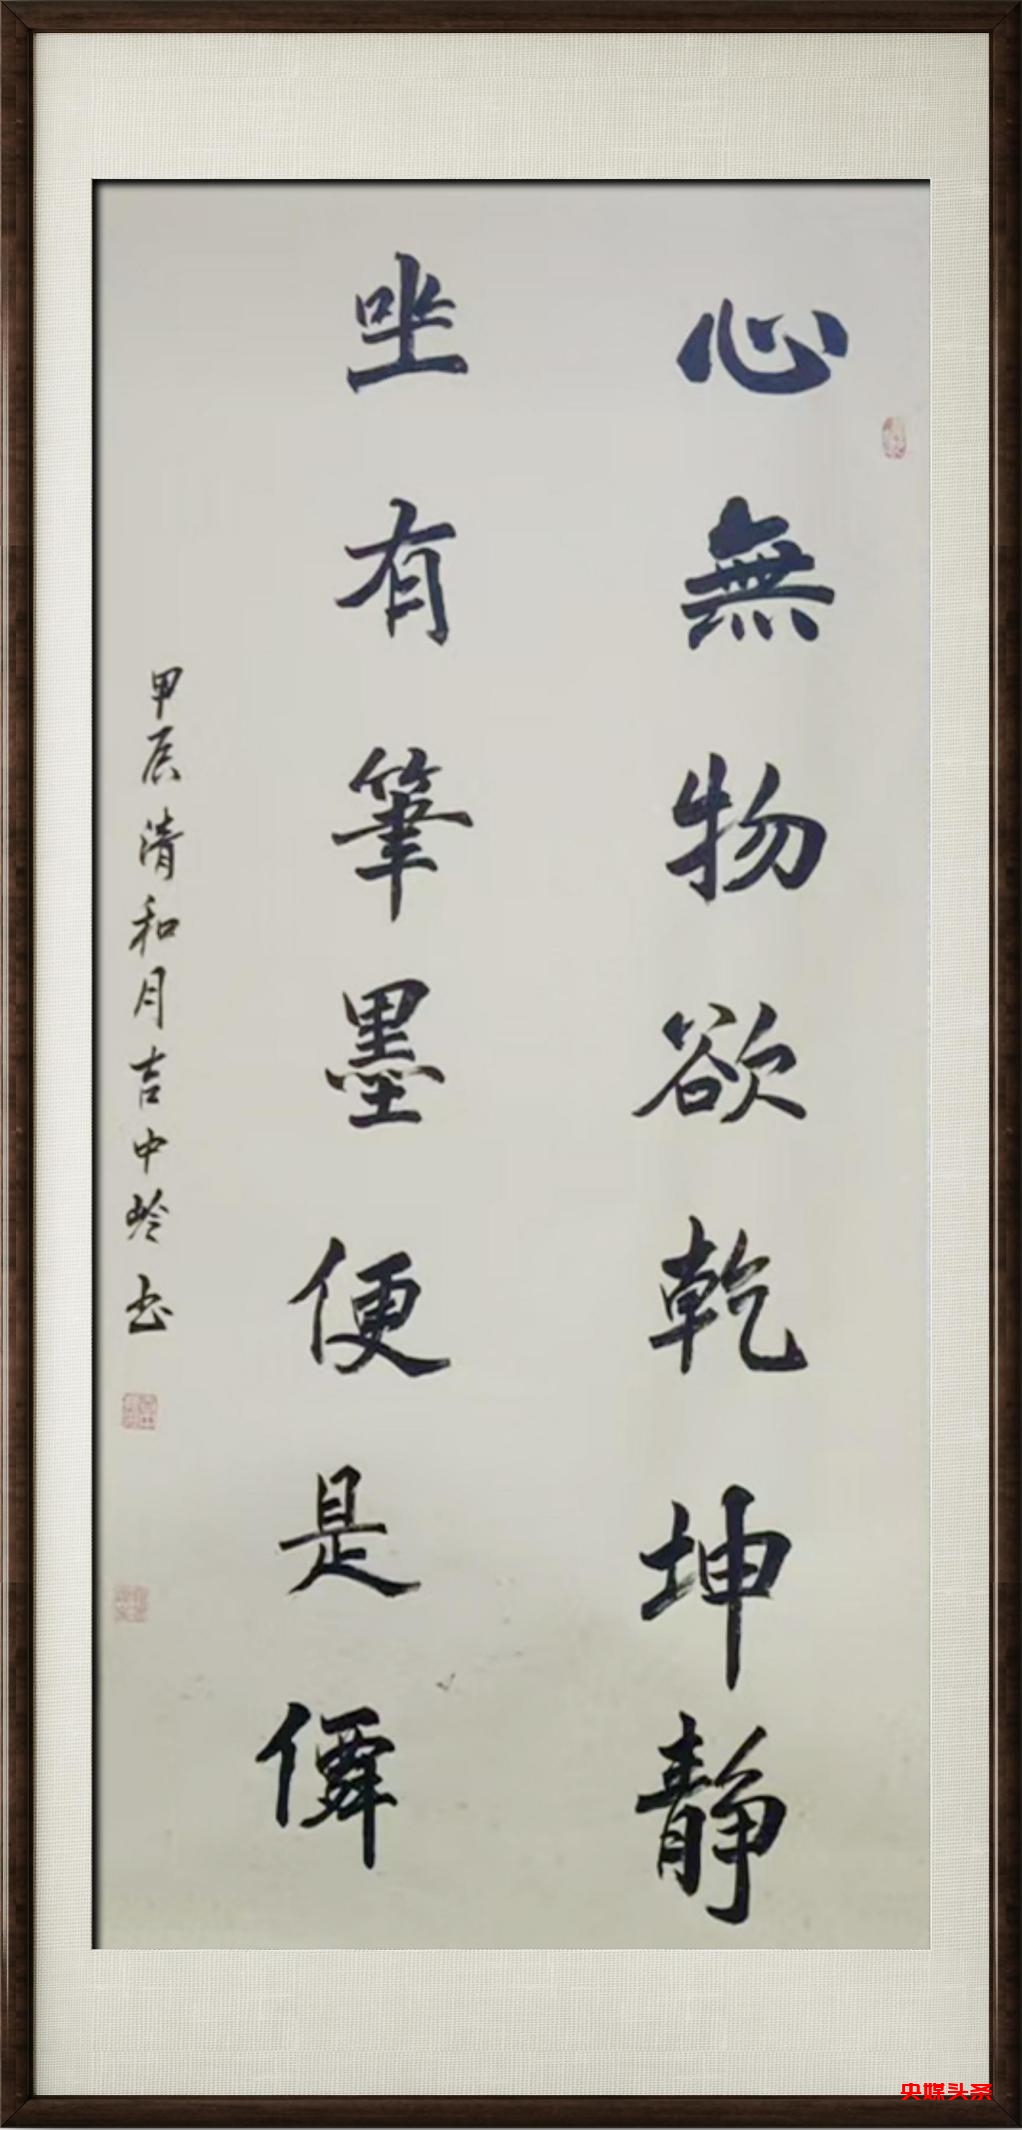 心無物欲乾坤静
坐有筆墨便是僊
甲辰清和月吉中岭书
央媒头条